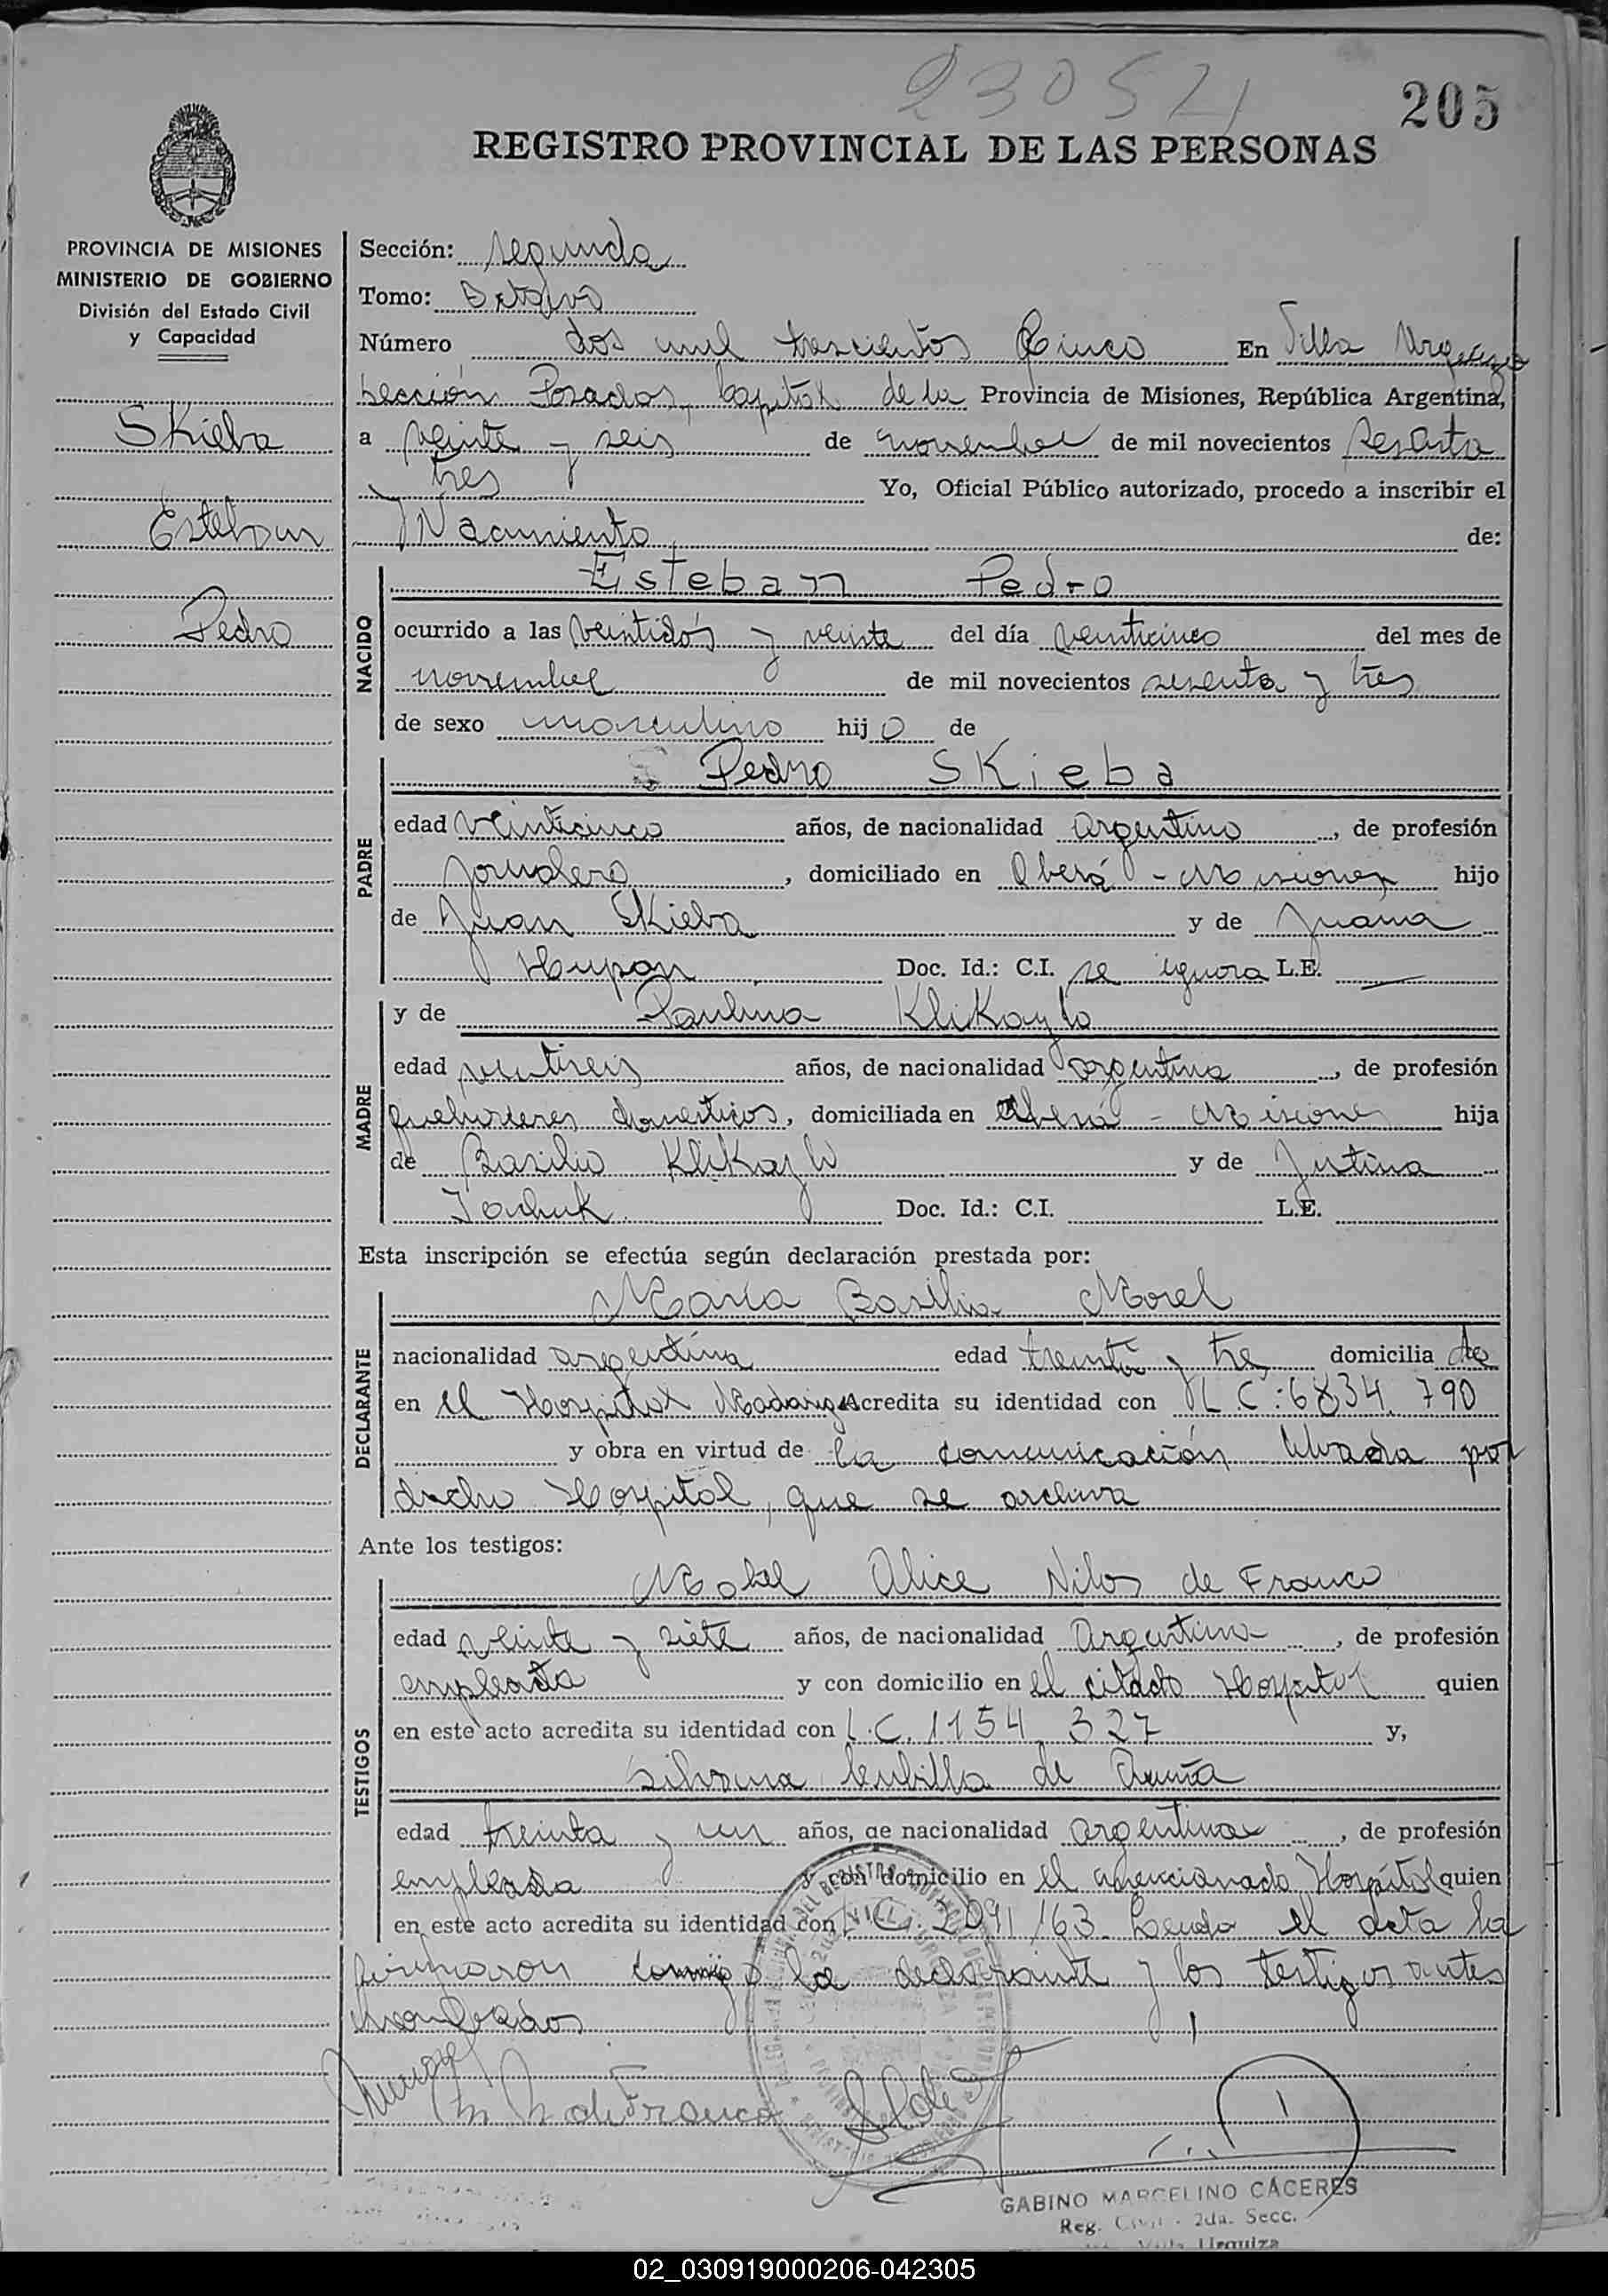 23054
205
REGISTRO PROVINCIAL DE LAS PERSONAS
PROVINCIA DE MISIONES
MINISTERIO DE GOBIERNO
División del Estado Civil
y Capacidad
Skieba
Esteban
Pedro
Sección: segunda
Tomo: Octavo
Número dos mil trescientos Cinco En Villa Urquiza
Sección Posadas, Capital de la Provincia de Misiones, República Argentina,
a veinte y seis de noviembre de mil novecientos sesenta
tres Yo, Oficial Público autorizado, procedo a inscribir el
Nacimiento de:
NACIDO
Esteban Pedro
ocurrido a las veintidós y veinte del día veinticinco del mes de
noviembre de mil novecientos sesenta y tres
de sexo masculino hijo de
PADRE
Pedro SKieba
edad veinticinco años, de nacionalidad argentino, de profesión
Jornalero, domiciliado en Oberá - Misiones hijo
de Juan Skieba y de Juana
Hupan Doc. Id.: C.I. se ignora L.E. —
MADRE
y de Paulina Klikaylo
edad veintiseis años, de nacionalidad argentina, de profesión
quehaceres domesticos, domiciliada en Oberá - Misiones hija
de Basilio Klikaylo y de Justina
Doc. Id.: C.I. L.E.
Esta inscripción se efectúa según declaración prestada por:
DECLARANTE
María Basilia Morel
nacionalidad argentina edad treinta y tre domicilia da
en el Hospital Madariaga Acredita su identidad con L.C.: 6834.790
y obra en virtud de la comunicación librada por
dicho Hospital, que se archiva
Ante los testigos:
TESTIGOS
Mabel Alice de Franco
edad veinte y siete años, de nacionalidad Argentina, de profesión
empleada y con domicilio en el citado Hospital quien
en este acto acredita su identidad con L.C. 1154 327 y,
Silvana de Acuña
edad treinta y un años, de nacionalidad argentina, de profesión
empleada y con domicilio en el mencionado Hospital quien
en este acto acredita su identidad con L.C. 2091163. Leida el acta la
firmaron conmigo la declarante y los testigos antes
mencionados
GABINO MARCELINO CÁCERES
Reg. Civil - 2da. Secc.
Villa Urquiza
02_030919000206-042305